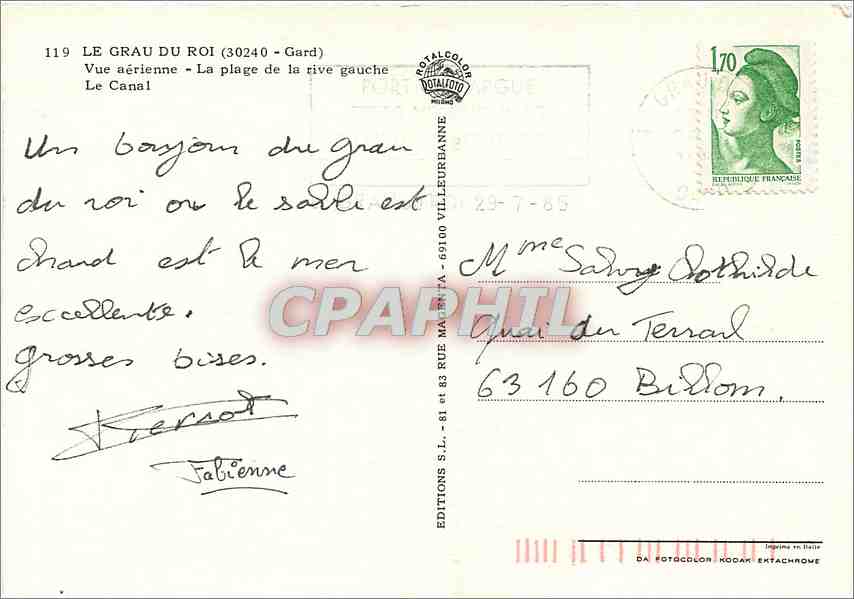 119 LE GRAU DU ROI (30240 - Gard)
Vue aérienne - La plage de la rive gauche
Le Canal
ROTALCOLOR
ROTALFOTO
MILANO
PORT CAMARGUE
29-7-85
1,70
POSTES
REPUBLIQUE FRANÇAISE
Un bonjour du grau
du roi ou le sable est
chaud est le mer
excellente.
grosses bises.
Pierrot
Fabienne
EDITIONS S.L. - 81 et 83 RUE MAGENTA - 69100 VILLEURBANNE
Mme Clothilde
Quai du Terrail
63160 Billom.
CPAPHIL
Imprime en Italie
DA FOTOCOLOR KODAK EKTACHROME